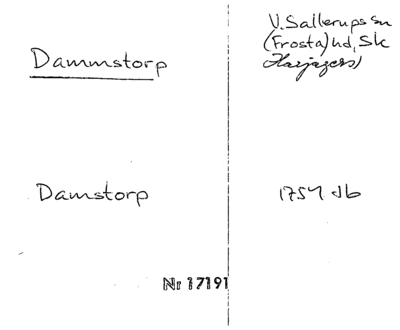 Dammstorp
V. Sallerups sn
(Frosta) hd, Sk
Harjagers)
Damstorp
1754 db
Nr 17191